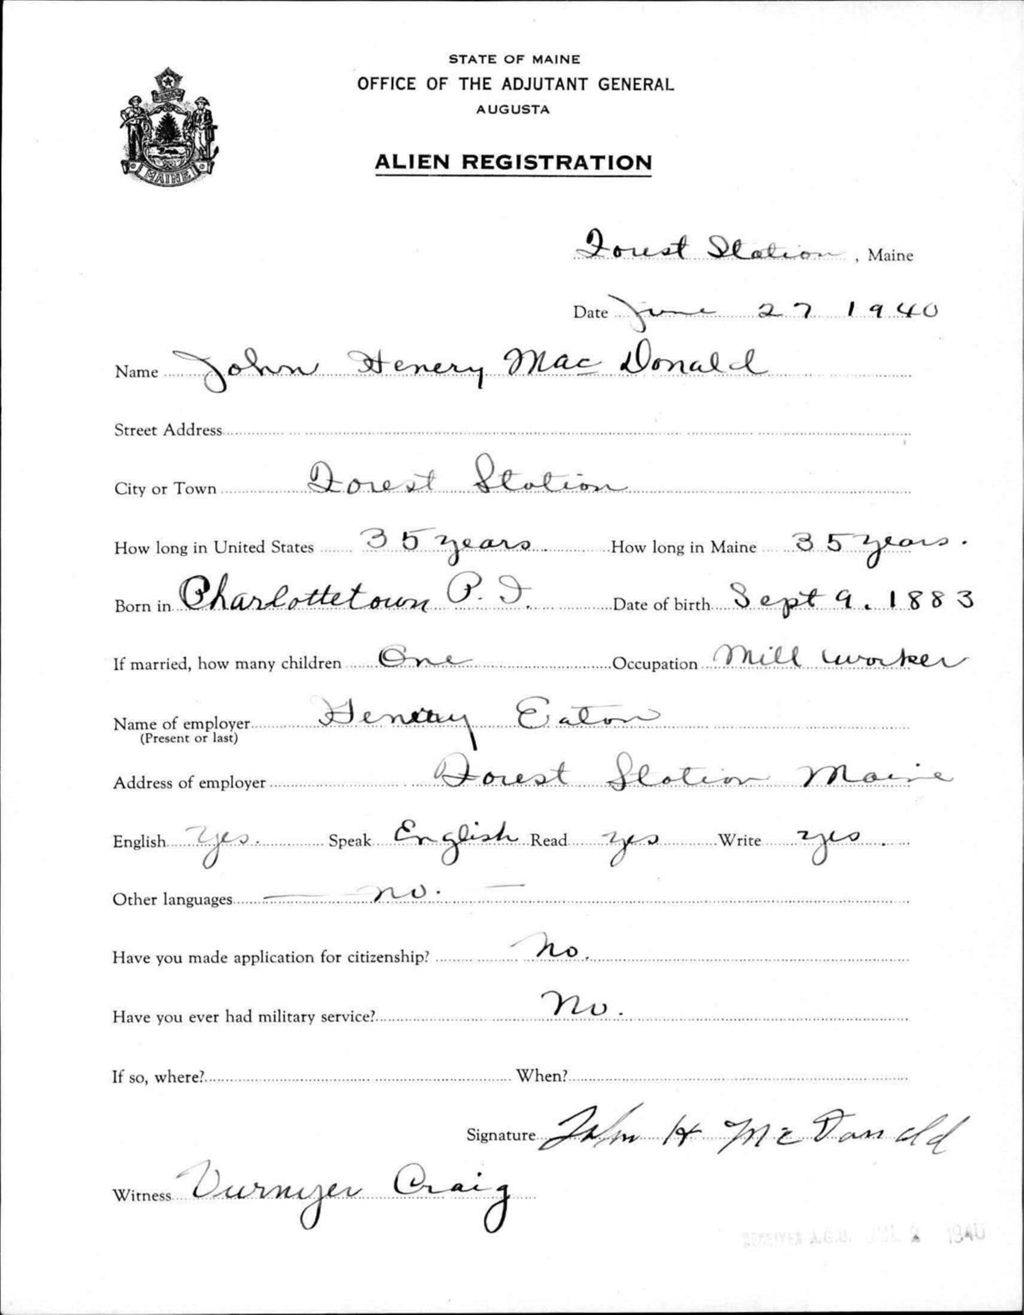 STATE OF MAINE
OFFICE OF THE ADJUTANT GENERAL
AUGUSTA
ALIEN REGISTRATION
MAINE
Forest Station, Maine
Date June 27 1940
Name John Henery Mac Donald
Street Address
City or Town Forest Station
How long in United States 35 years How long in Maine 35 years.
Born in Charlottetown P. I. Date of birth Sept 9. 1883
If married, how many children One Occupation Mill worker
Name of employer Henery Eaton
(Present or last)
Address of employer Forest Station Maine
English yes. Speak English Read yes Write yes.
Other languages — no. —
Have you made application for citizenship? No.
Have you ever had military service? No.
If so, where? When?
Signature John H McDonald
Witness Craig
RECEIVED A.G.O. JUL 2 1940